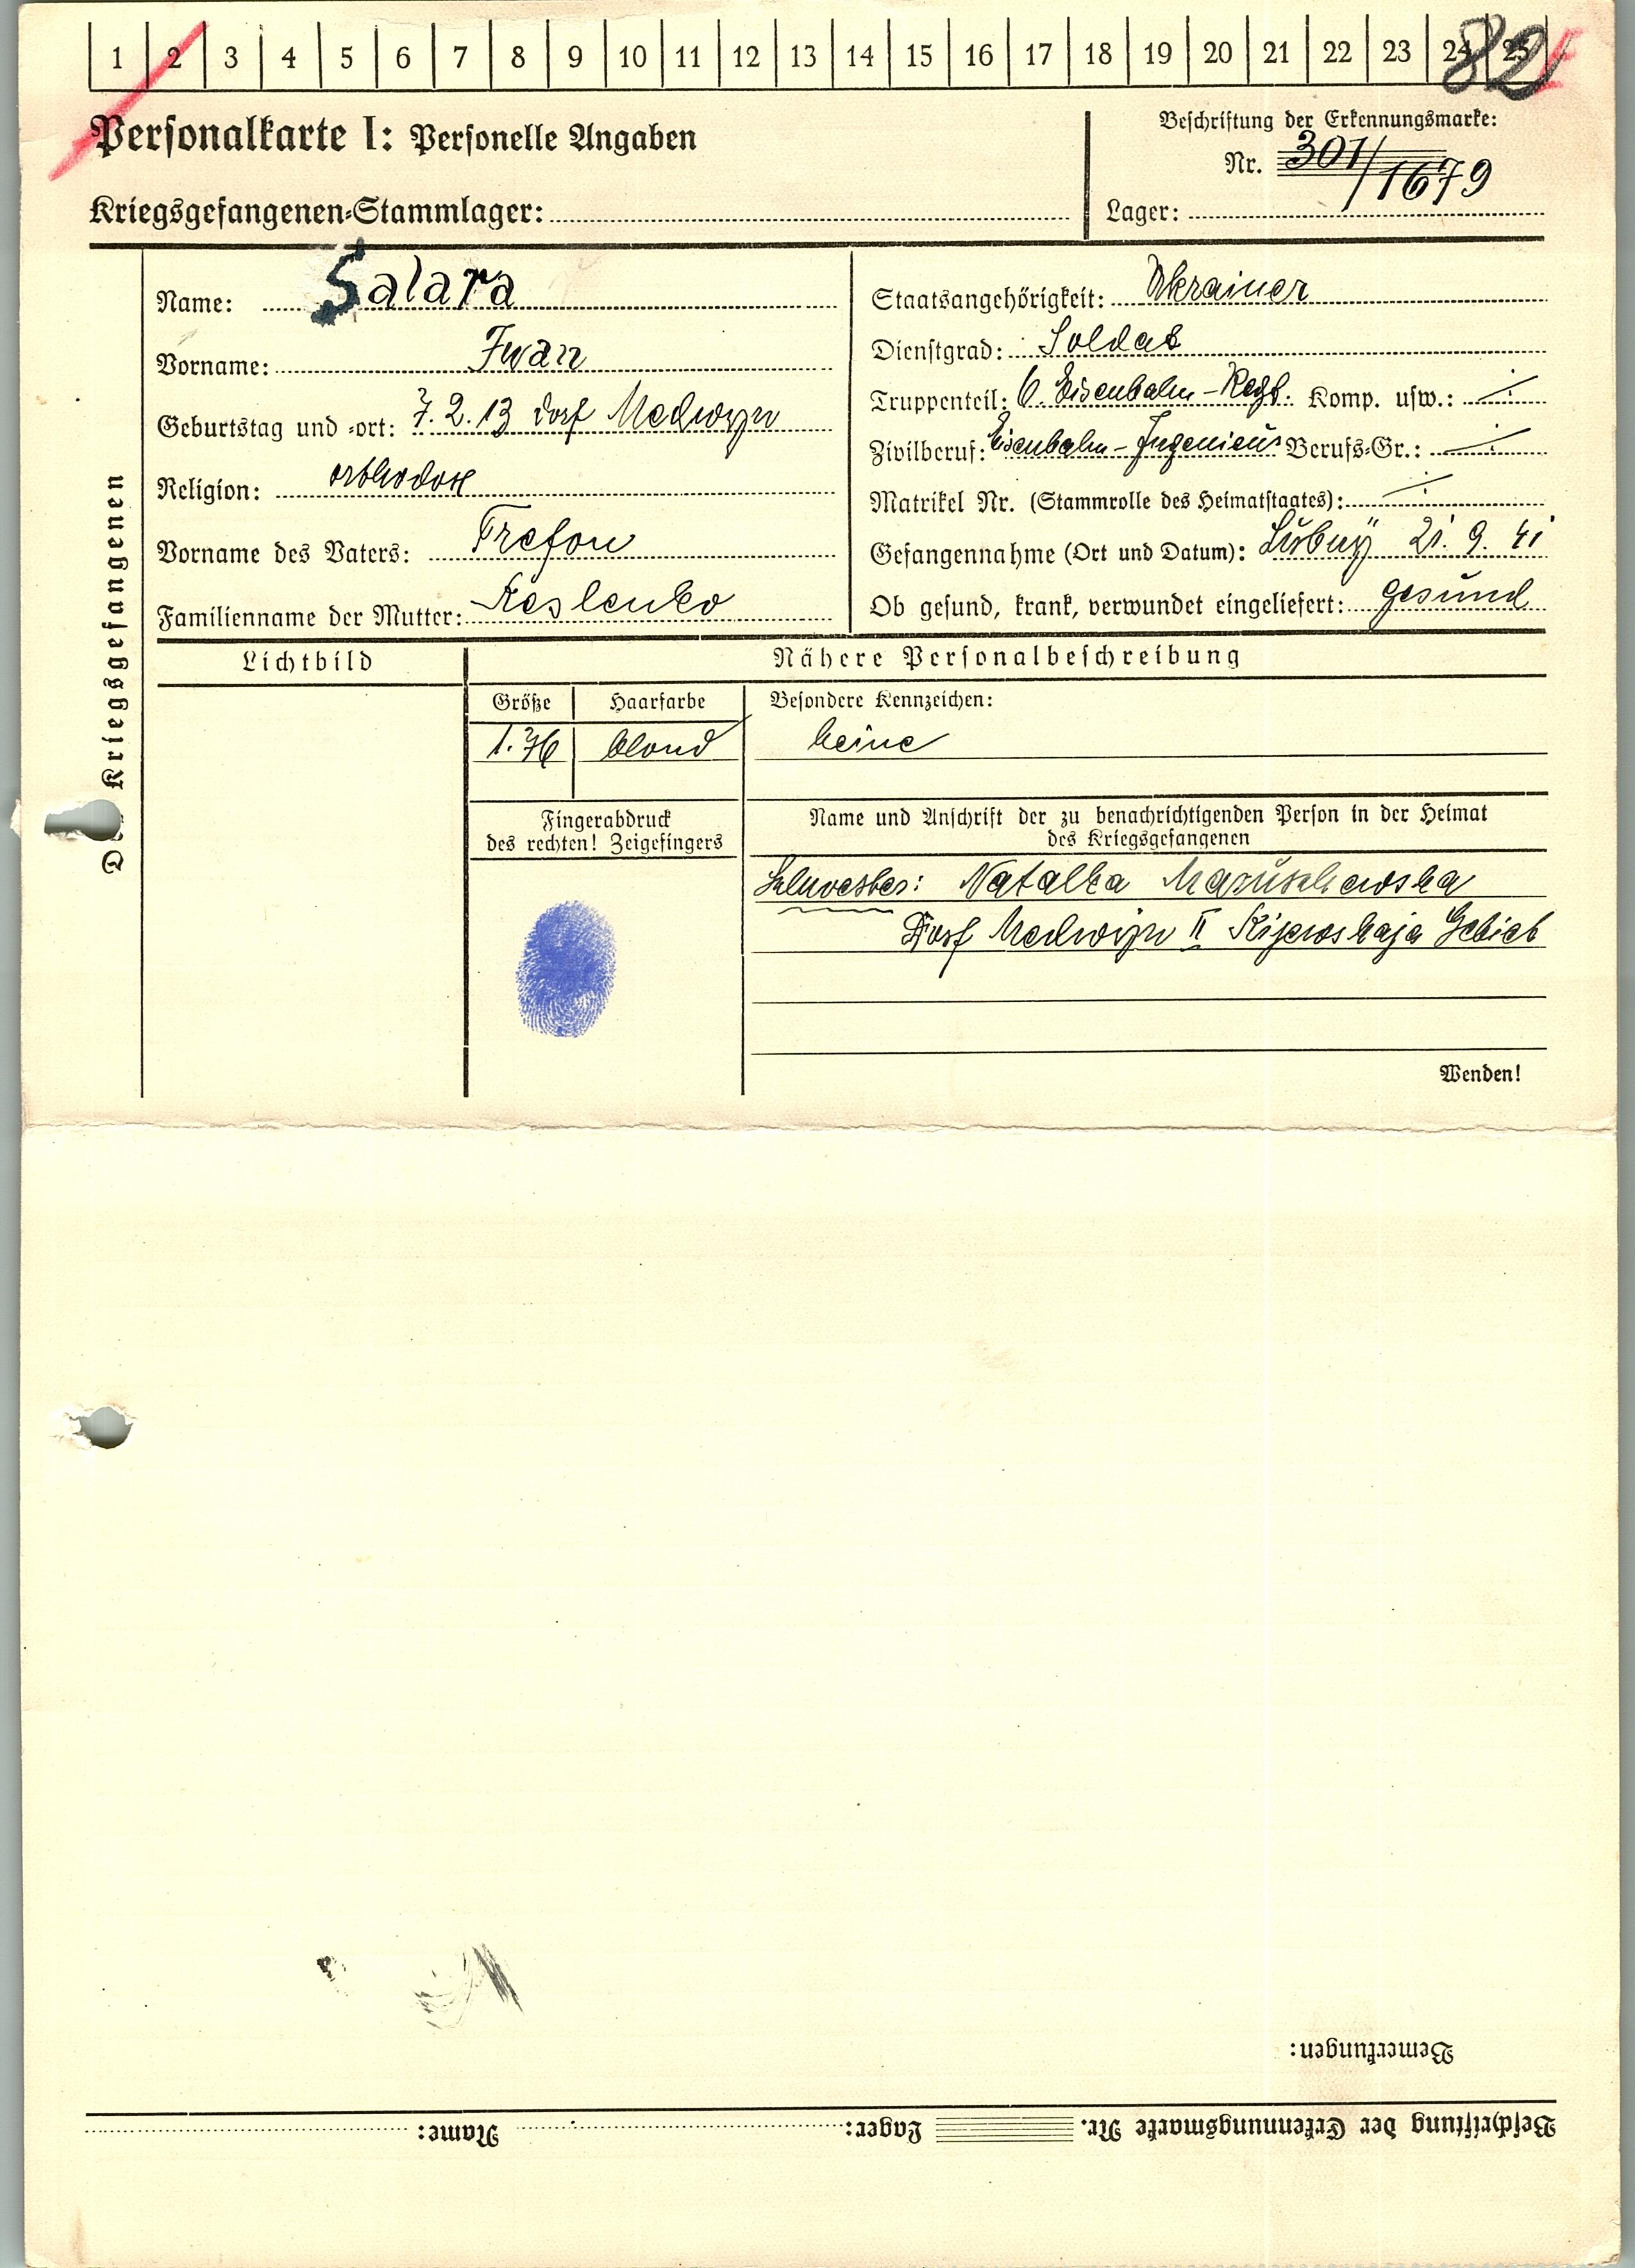 1 2 3 4 5 6 7 8 9 10 11 12 13 14 15 16 17 18 19 20 21 22 23 24 25
82
Personalkarte I: Personelle Angaben
Beschriftung der Erkennungsmarke:
Nr. 301/1679
Kriegsgefangenen-Stammlager:
Lager:
Des Kriegsgefangenen
Name: Salara
Vorname: Iwan
Geburtstag und -ort: 7.2.13 Dorf Medwyn
Religion: orthodox
Vorname des Vaters: Trefon
Familienname der Mutter: Keslenko
Staatsangehörigkeit: Ukrainer
Dienstgrad: Soldat
Truppenteil: 6. Eisenbahn-Regt. Komp. usw.: ./.
Zivilberuf: Eisenbahn-Ingenieur Berufs-Gr.: ./.
Matrikel Nr. (Stammrolle des Heimatstaates): ./.
Gefangennahme (Ort und Datum): Lubny 21. 9. 41
Ob gesund, krank, verwundet eingeliefert: gesund
Lichtbild
Nähere Personalbeschreibung
Größe Haarfarbe Besondere Kennzeichen:
1.76 blond keine
Fingerabdruck
des rechten! Zeigefingers
Name und Anschrift der zu benachrichtigenden Person in der Heimat
des Kriegsgefangenen
Schwester: Natalka Maruschewska
Dorf Medwyn II Kijewskaja Gebiet
Wenden!
Bemerkungen:
Beschriftung der Erkennungsmarke Nr. Lager: Name: